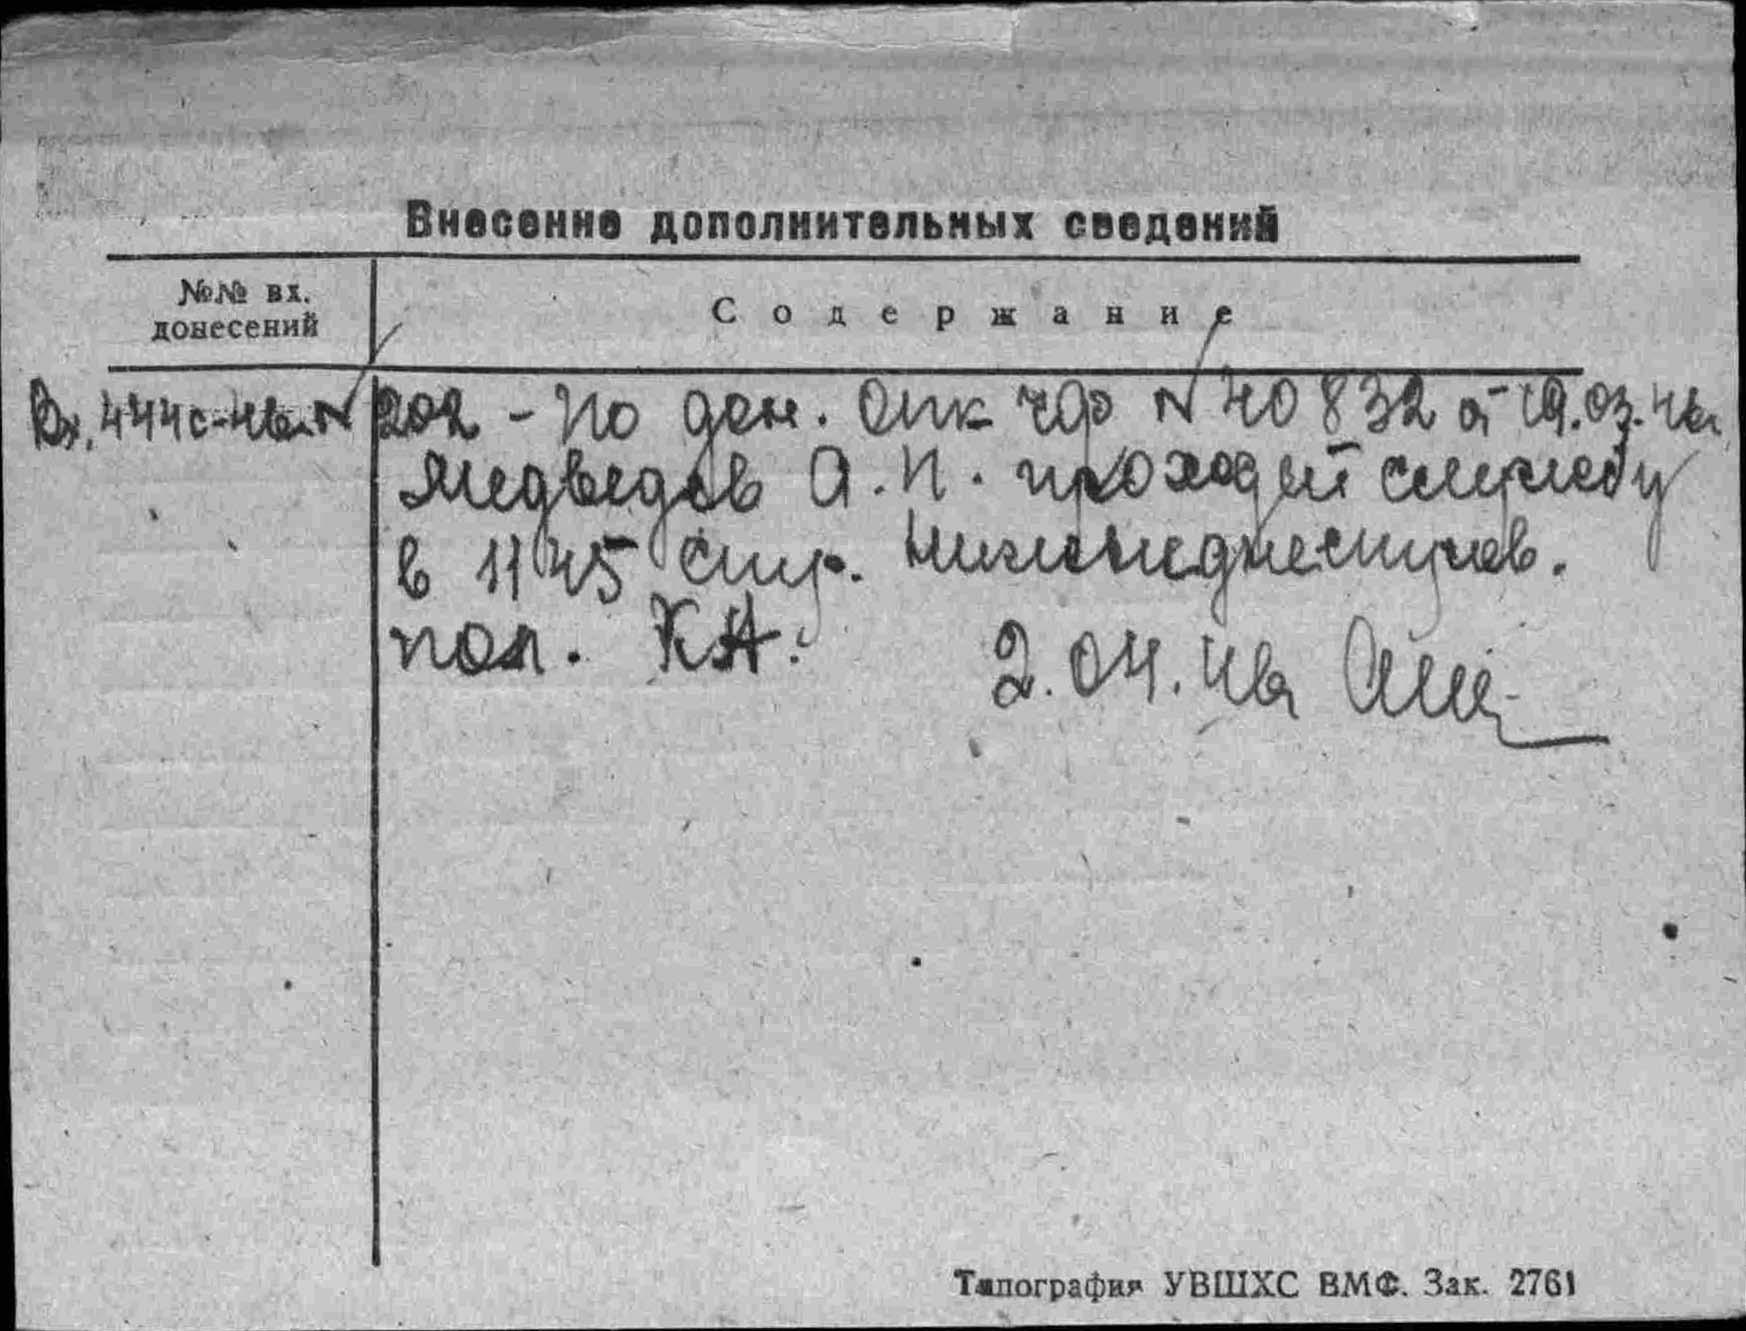 Внесение дополнительных сведений
№№ вх.
донесений
Содержание
Вх. 444с-46г. N 202 - По дон. ОПК ЧФ N 40832 от 19.03.46г
Медведев А.П. проходит службу
в 1145 стр. Нижнеднестров.
пол. КА.
2.04.46г
Типография УВШХС ВМФ. Зак. 2761